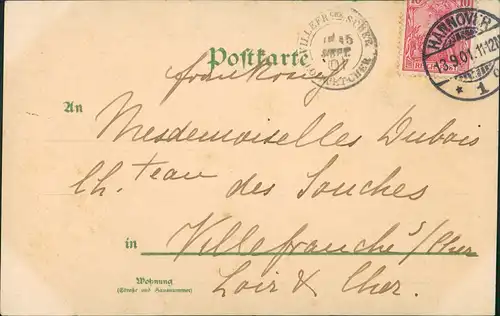 VILLEFRANCHE S CHER
15 SEPT 01
LOIR-ET-CHER
10 10
HANNOVER
13.9.01. 11-12V
* 1 *
Postkarte
An
Mesdemoiselles Dubois
Ch.teau des Souches
in Villefranche s/Cher
Wohnung
(Straße und Hausnummer)
Loir & Cher.